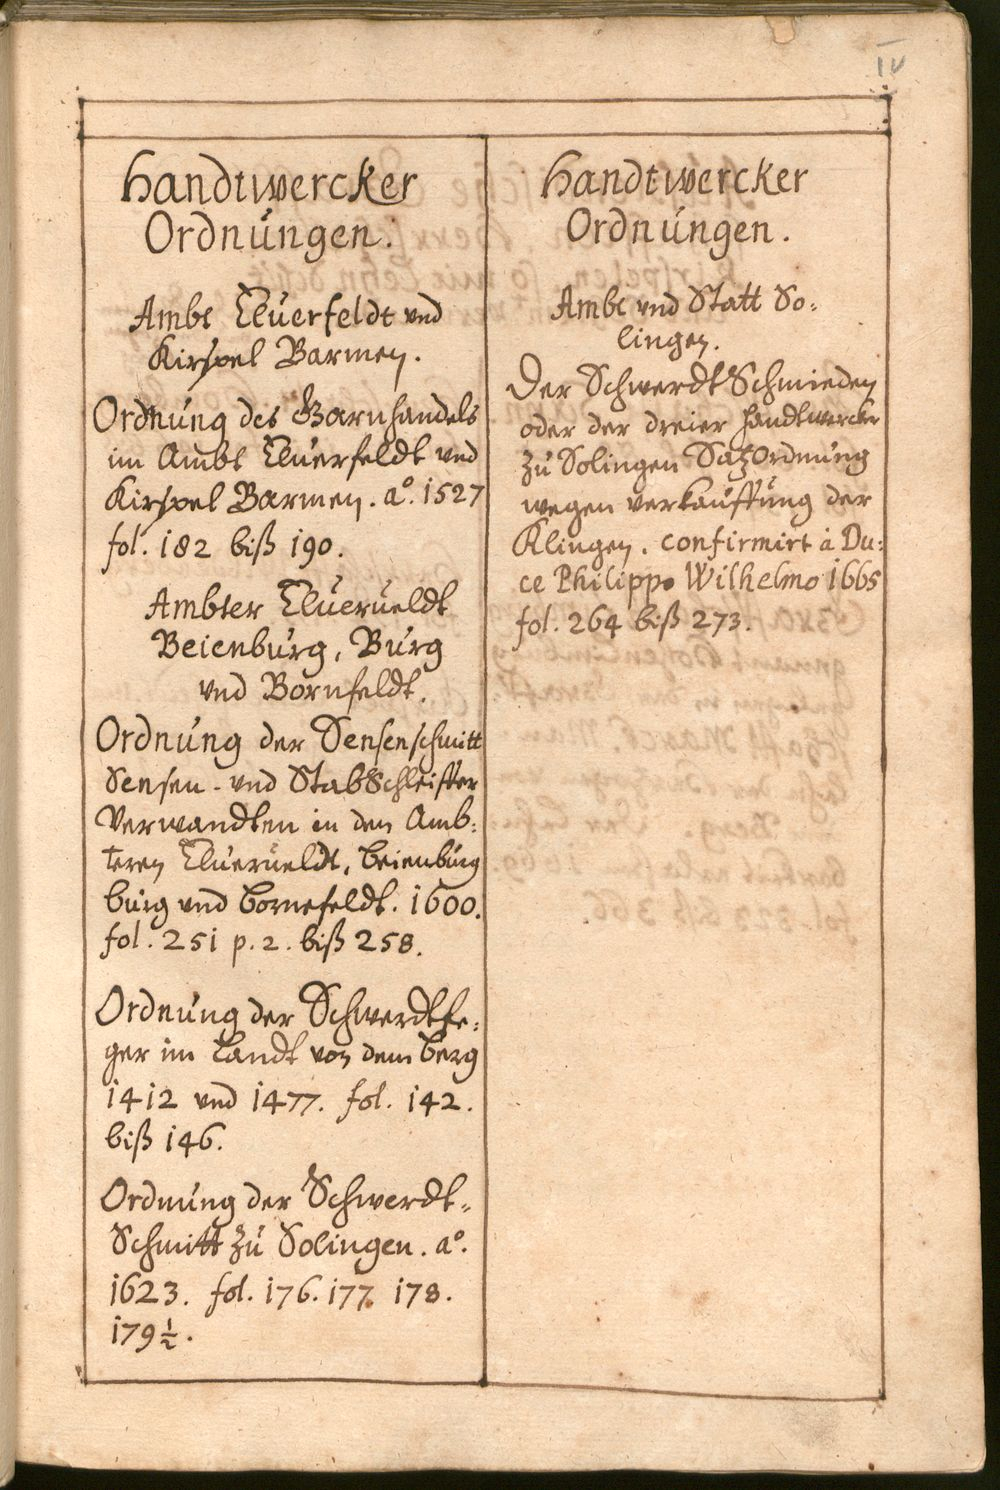 IV
Handtwercker
Ordnungen.
Ambt Eluerfeldt vnd
Kirspel Barmen.
Ordnung des Garnhandels
im Ambt Eluerfeldt vnd
Kirspel Barmen. aº. 1527
fol. 182 biß 190.
Ambter Eluerueldt
Beienburg, Burg
vnd Bornfeldt.
Ordnung der Sensenschmitt
Sensen- vnd Stabschleiffer
Verwandten in den Amb:
teren Elueruеldt, Beienburg
burg vnd Bornefeldt. 1600.
fol. 251 p. 2. biß 258.
Ordnung der Schwerdtfe:
ger im Landt von dem Berg
1412 vnd 1477. fol. 142.
biß 146.
Ordnung der Schwerdt-
Schmitt zu Solingen. aº.
1623. fol. 176. 177. 178.
179½.
Handtwercker
Ordnungen.
Ambt vnd Statt So:
lingen.
Der Schwerdt Schmieden
oder der dreier Handtwercker
zu Solingen Satzordnung
wegen verkauffung der
Klingen. confirmirt à Du:
ce Philippo Wilhelmo 1665
fol. 264 biß 273.